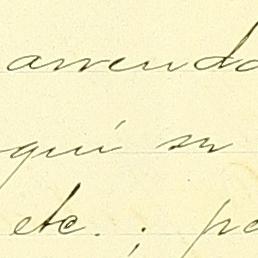 arrenda
quí su
etc. ; pa